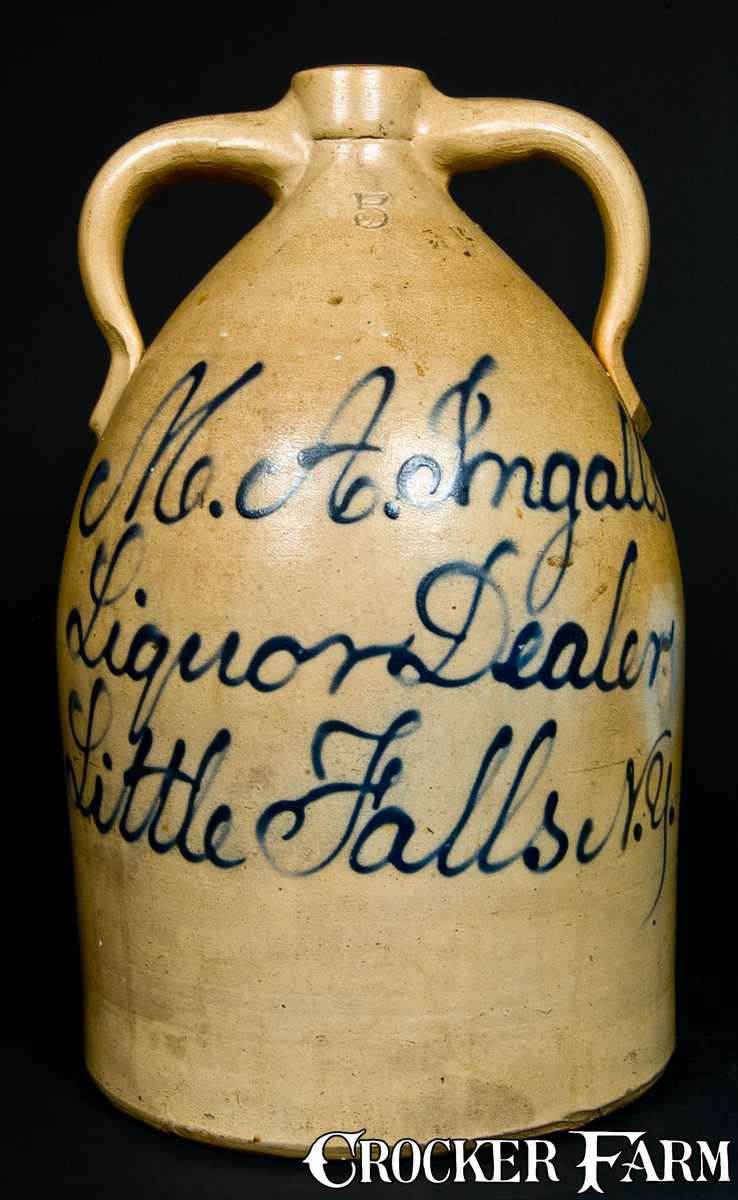 5
M. A. Ingalls
Liquor Dealer
Little Falls N.Y.
CROCKER FARM